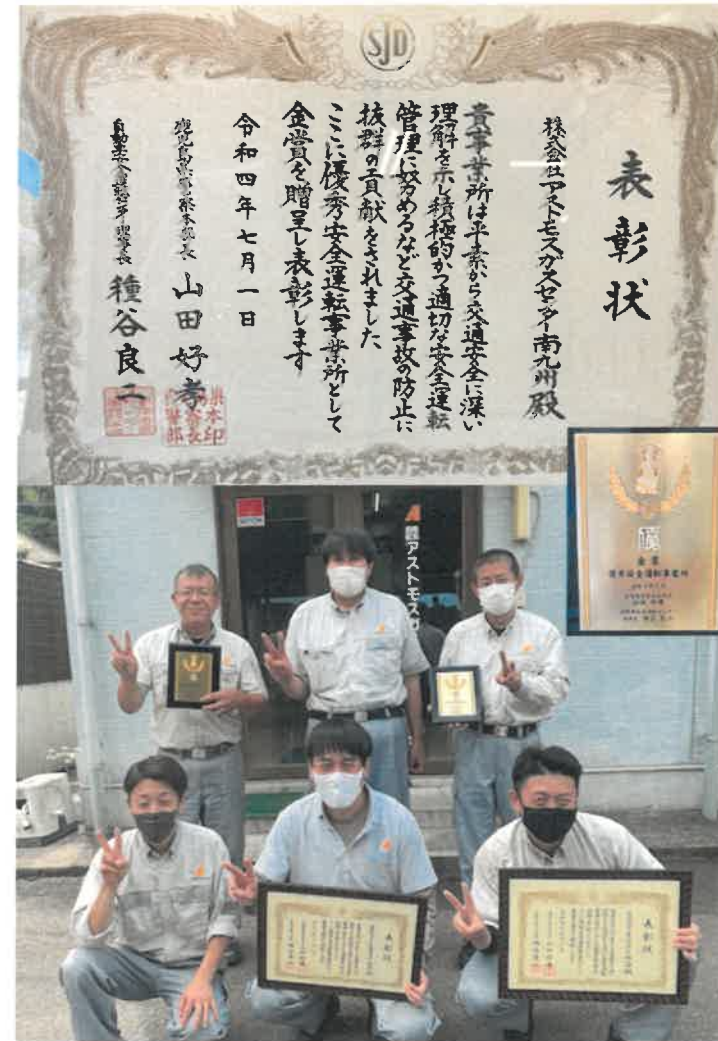 SJD
表彰状
株式会社アストモスガスセンター南九州殿
貴事業所は平素から交通安全に深い
理解を示し積極的かつ適切な安全運転
管理に努めるなど交通事故の防止に
抜群の貢献をされました
ここに優秀安全運転事業所として
金賞を贈呈し表彰します
令和四年七月一日
鹿児島県警察本部長 山田好孝
自動車安全運転センター理事長 種谷良二
金賞
優秀安全運転事業所
アストモスガ
表彰状
表彰状